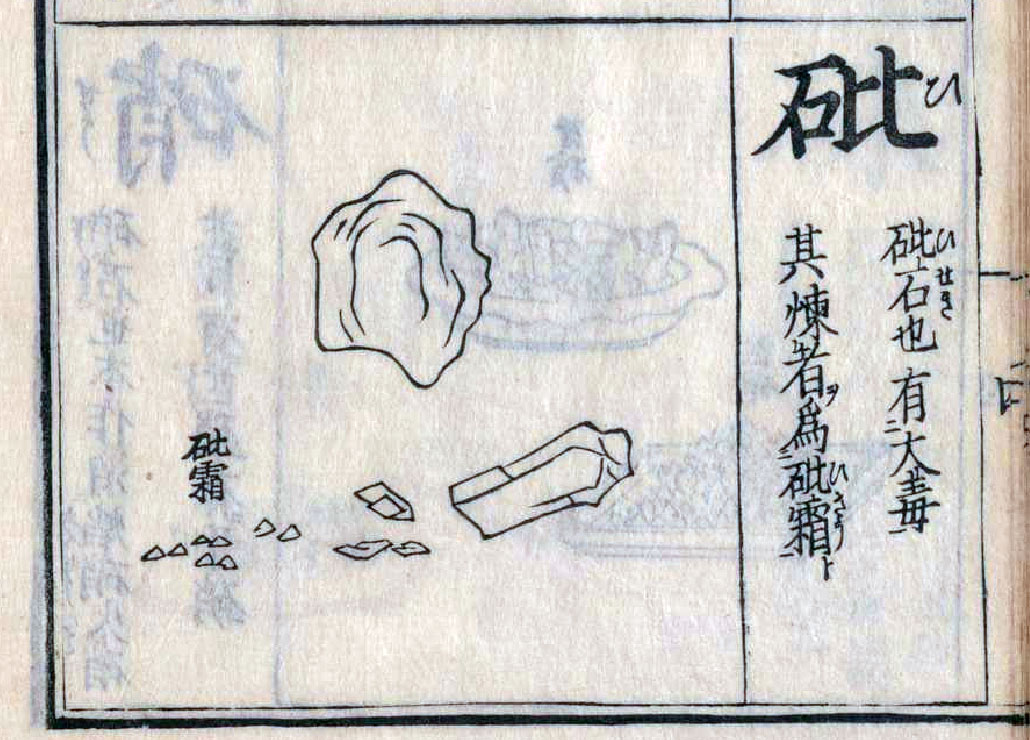 砒 ひ
砒石也有大毒 ひせき
其煉者為砒霜 ヲ ひさう ト
砒霜